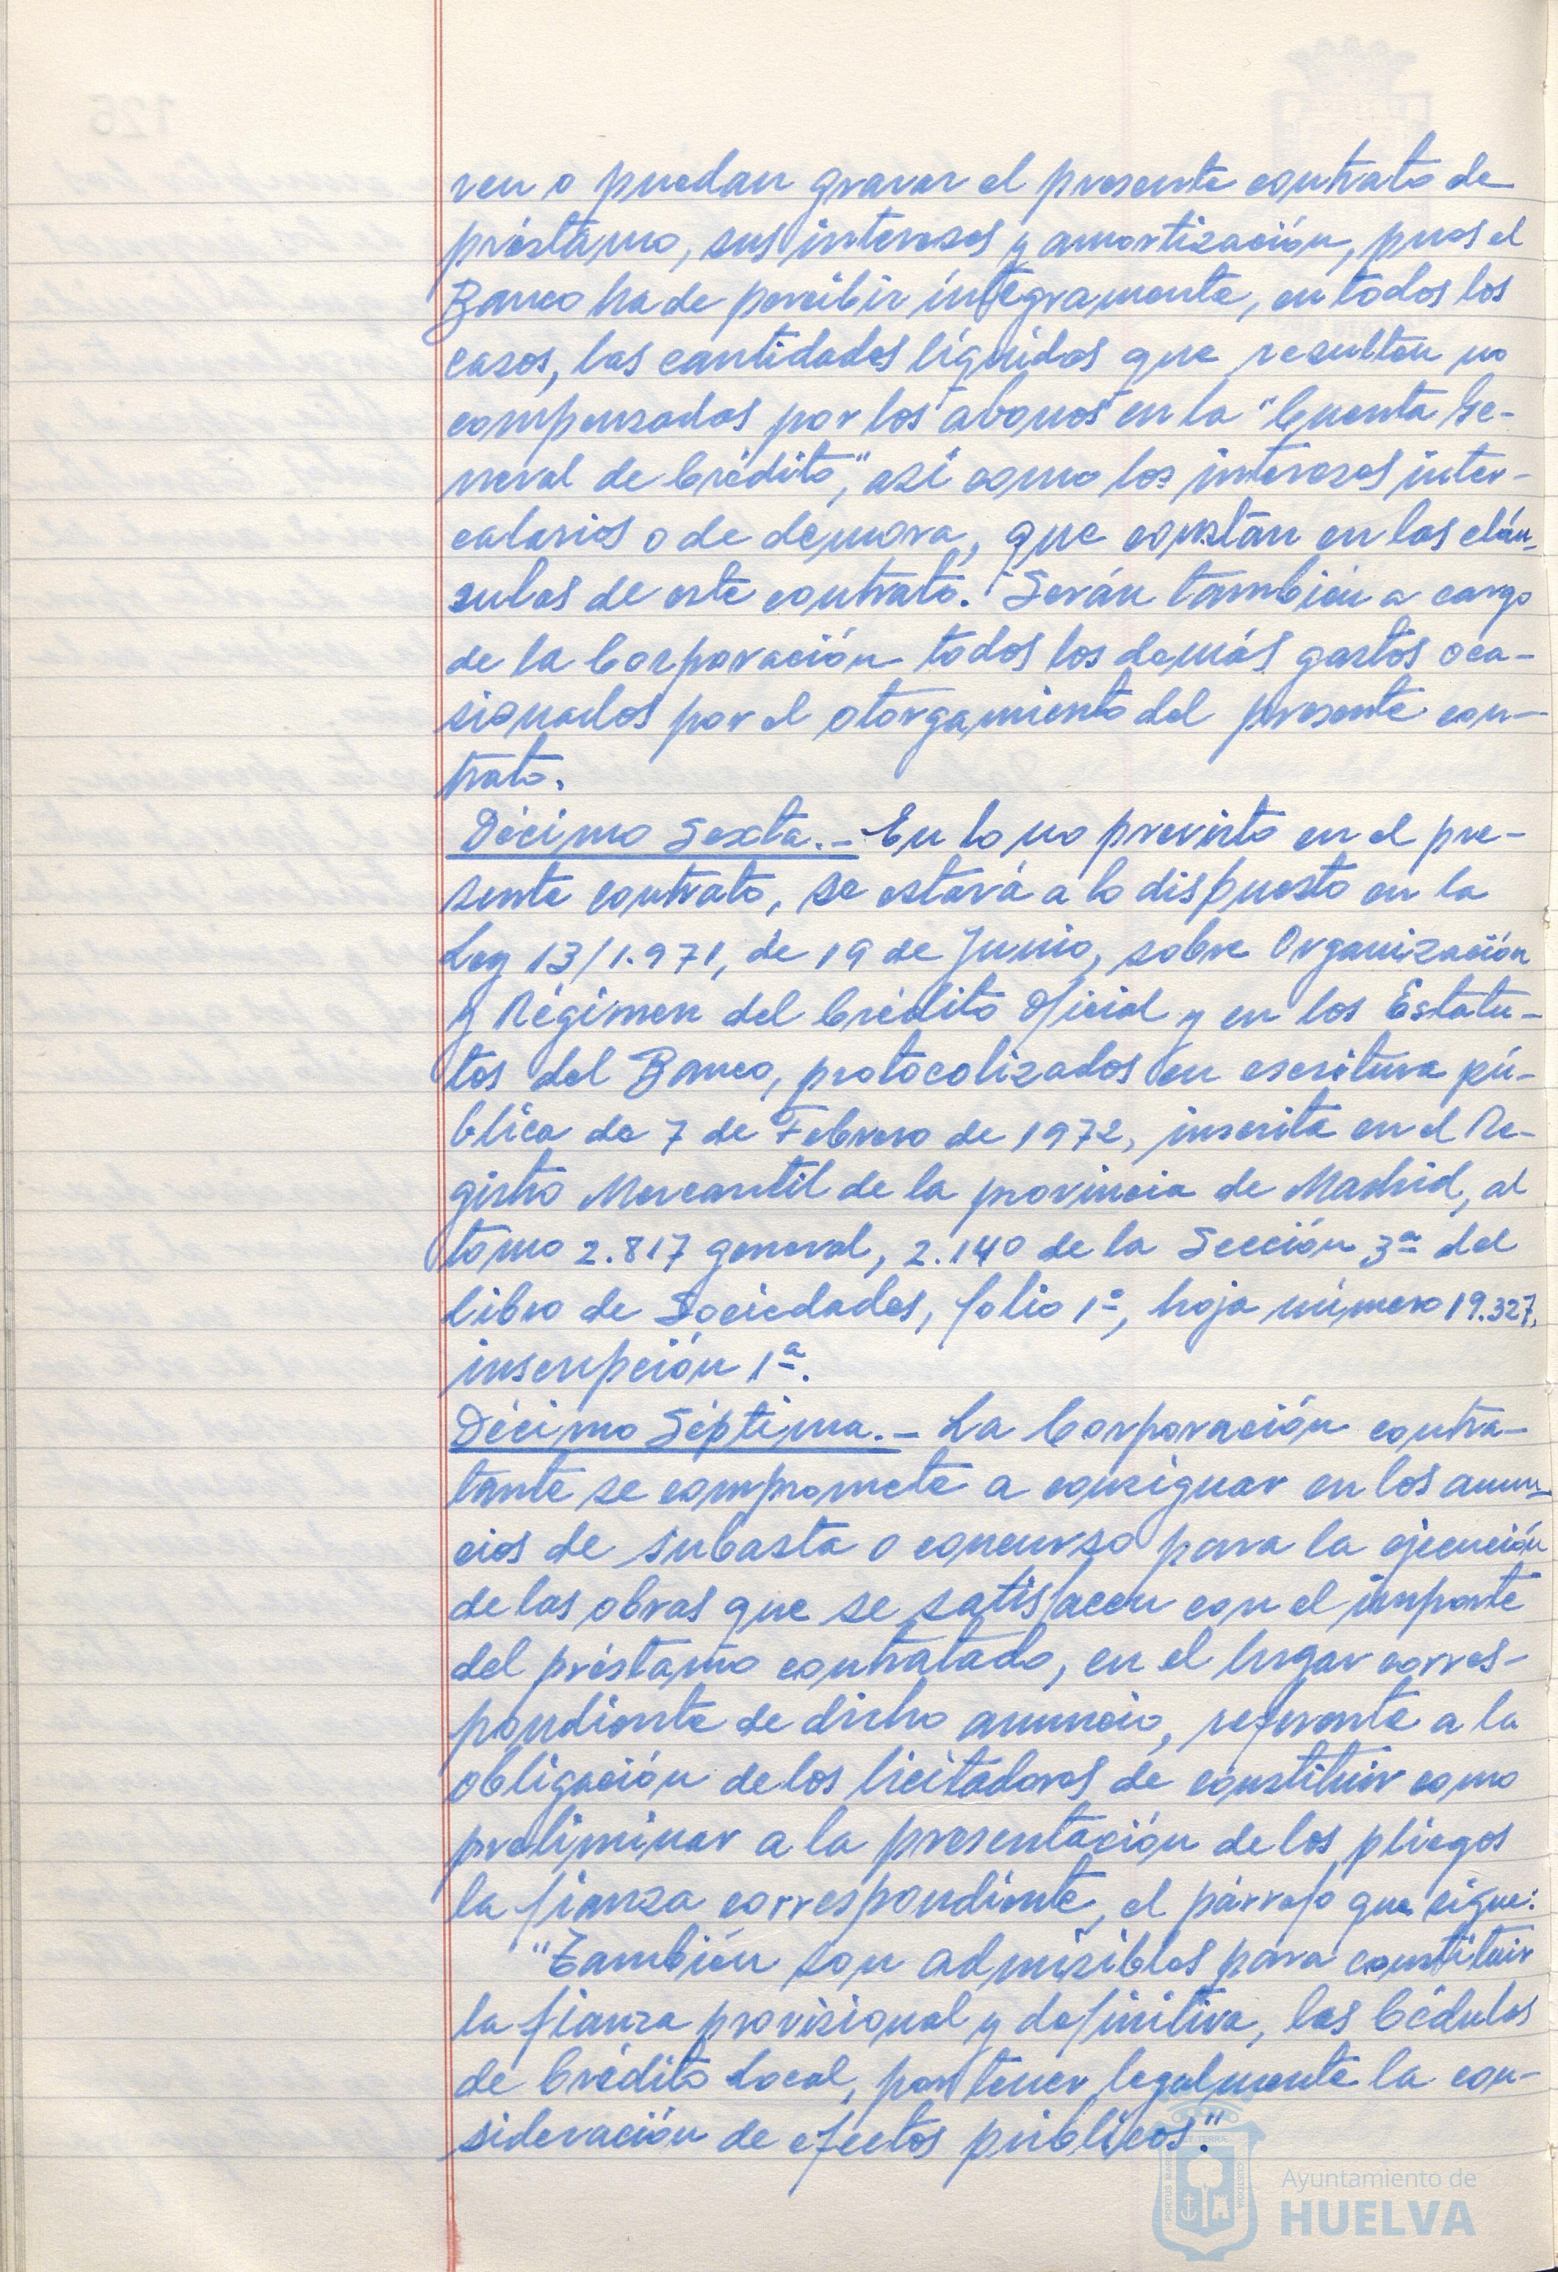 ren o puedan gravar el presente contrato de
préstamo, sus intereses y amortización, pues el
Banco ha de percibir íntegramente, en todos los
casos, las cantidades líquidas que resulten no
compensadas por los abonos en la "Cuenta Ge-
neral de Crédito", así como los intereses inter-
calarios o de demora, que constan en las cláu-
sulas de este contrato. Serán también a cargo
de la Corporación todos los demás gastos oca-
sionados por el otorgamiento del presente con-
trato.
Décimo Sexta.- En lo no previsto en el pre-
sente contrato, se estará a lo dispuesto en la
Ley 13/1.971, de 19 de Junio, sobre Organización
y Régimen del Crédito Oficial y en los Estatu-
tos del Banco, protocolizados en escritura pú-
blica de 7 de Febrero de 1972, inscrita en el Re-
gistro Mercantil de la provincia de Madrid, al
tomo 2.817 general, 2.140 de la Sección 3ª del
Libro de Sociedades, folio 1º, hoja número 19.327,
inscripción 1ª.
Décimo Séptima.- La Corporación contra-
tante se compromete a consignar en los anun-
cios de subasta o concurso para la ejecución
de las obras que se satisfacen con el importe
del préstamo contratado, en el lugar corres-
pondiente de dicho anuncio, referente a la
obligación de los licitadores de constituir como
preliminar a la presentación de los pliegos
la fianza correspondiente, el párrafo que sigue:
"También son admisibles para constituir
la fianza provisional y definitiva, las Cédulas
de Crédito Local, por tener legalmente la con-
sideración de efectos públicos."
Ayuntamiento de
HUELVA